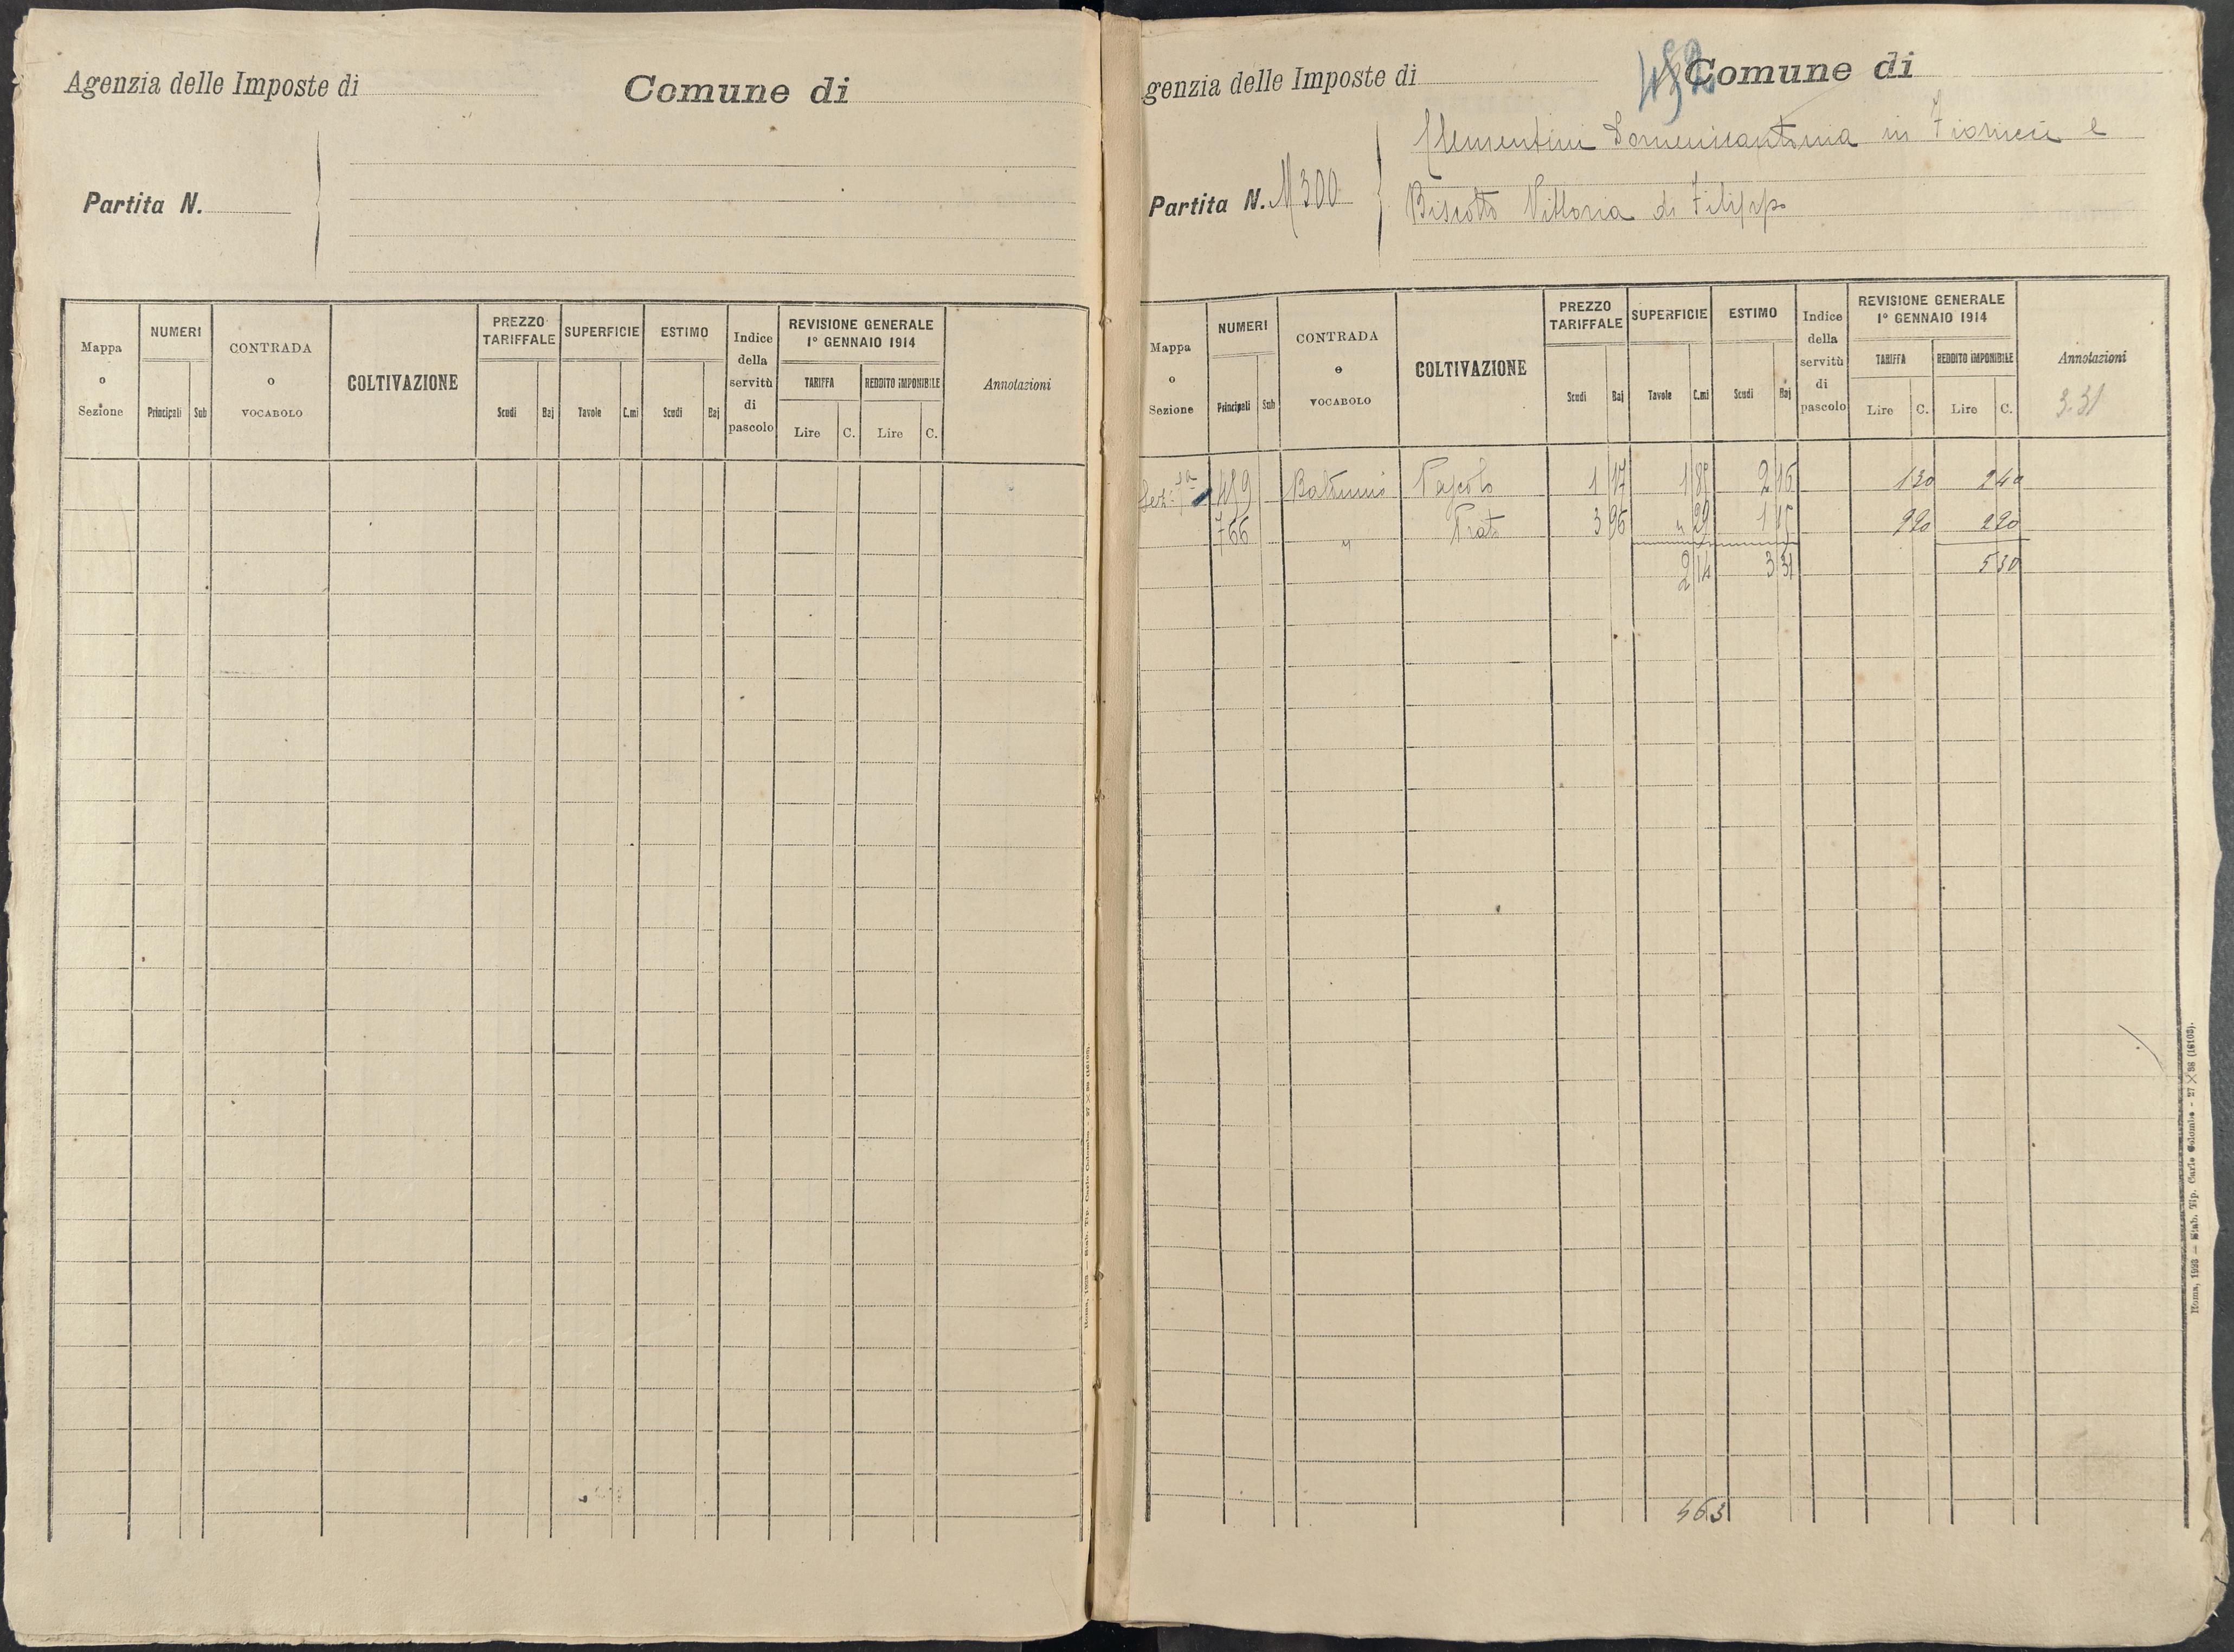 Agenzia delle Imposte di
Comune di
Partita N.
Mappa o Sezione
NUMERI
Principali Sub
CONTRADA o VOCABOLO
COLTIVAZIONE
PREZZO TARIFFALE
Scudi Baj
SUPERFICIE
Tavole C.mi
ESTIMO
Scudi Baj
Indice della servitù di pascolo
REVISIONE GENERALE
1° GENNAIO 1914
TARIFFA
Lire C.
REDDITO IMPONIBILE
Lire C.
Annotazioni
genzia delle Imposte di
Comune di
Clementini Domenicantonia in e
Partita N. 300
Biscotto Vittoria di Filippo
Mappa o Sezione
NUMERI
Principali Sub
CONTRADA o VOCABOLO
COLTIVAZIONE
PREZZO TARIFFALE
Scudi Baj
SUPERFICIE
Tavole C.mi
ESTIMO
Scudi Baj
Indice della servitù di pascolo
REVISIONE GENERALE
1° GENNAIO 1914
TARIFFA
Lire C.
REDDITO IMPONIBILE
Lire C.
Annotazioni
3.31
Sez. 1a Pascolo 1 17 1 2 16 130 240
766 " Prato 3 96 " 29 1 15 290
2 14 3 31 530
563
Roma, 1923 — Stab. Tip. Carlo Colombo - 27 X 38 (16105).